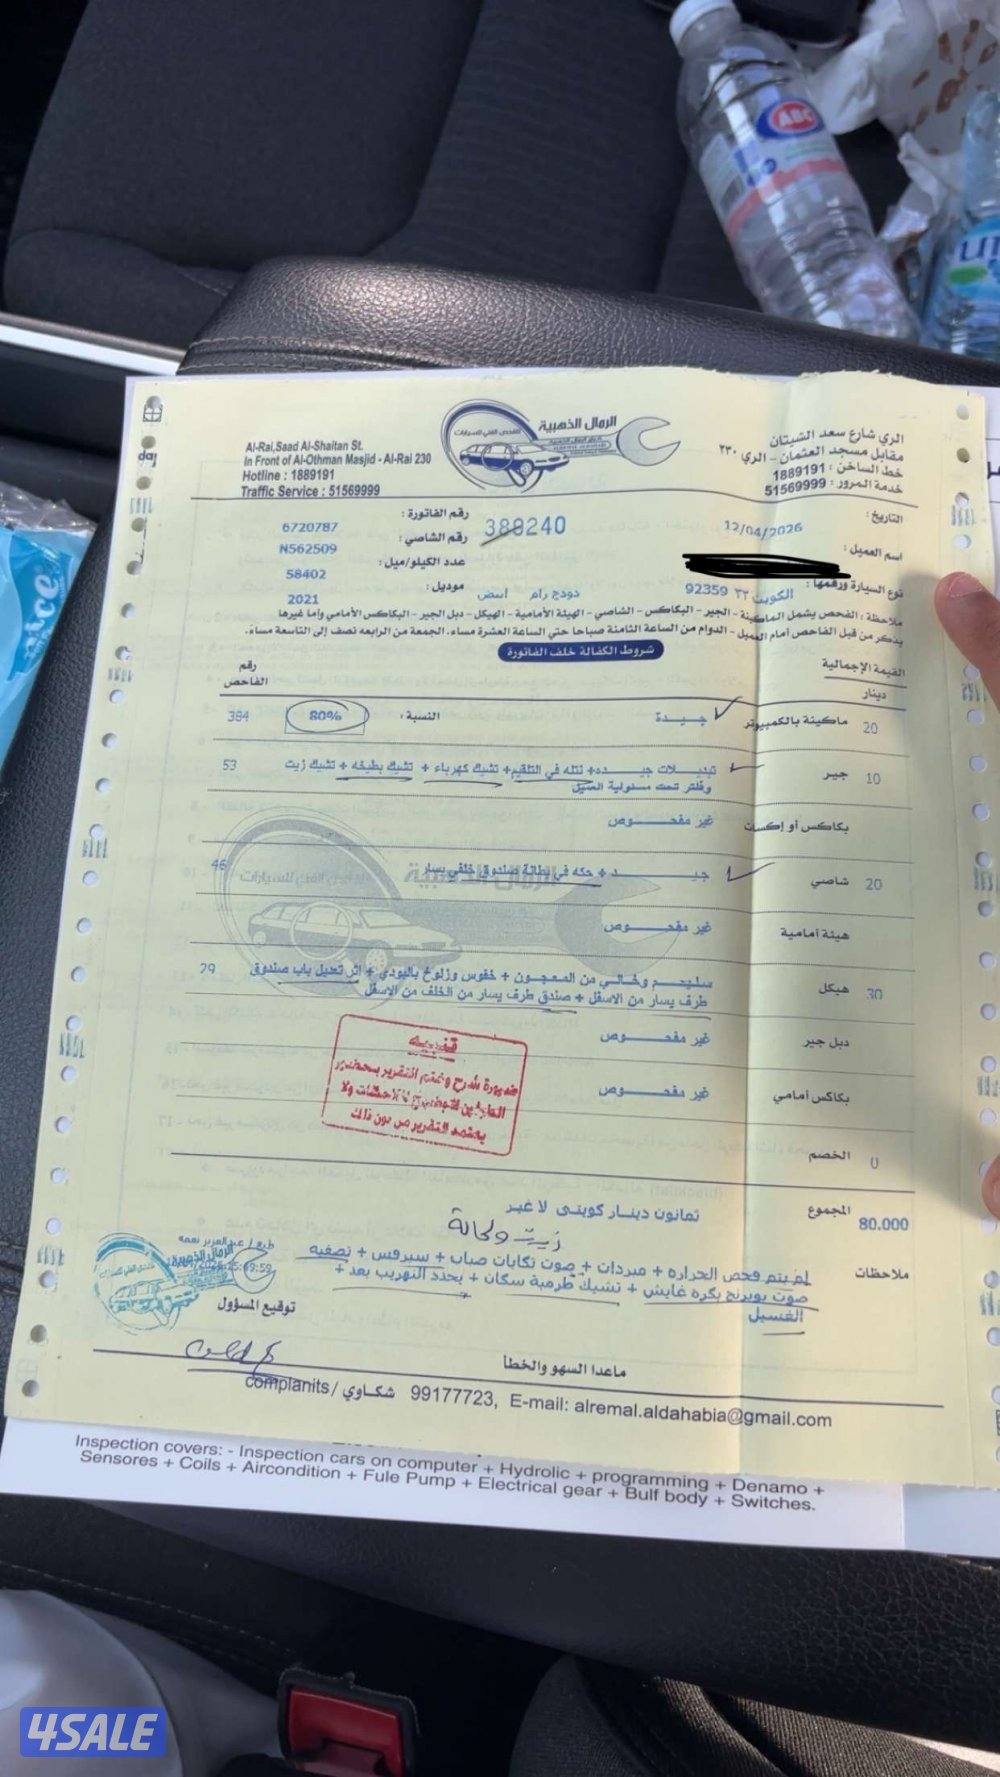 ABC
الرمال الذهبية
للفحص الفني للسيارات
Al-Rai,Saad Al-Shaitan St.
In Front of Al-Othman Masjid - Al-Rai 230
Hotline : 1889191
Traffic Service : 51569999
الري شارع سعد الشيتان
مقابل مسجد العثمان - الري ٢٣٠
خط الساخن : 1889191
خدمة المرور : 51569999
التاريخ : 12/04/2026
389240
رقم الفاتورة : 6720787
اسم العميل :
رقم الشاصي : N562509
نوع السيارة ورقمها : الكويت ٣٣ 92359 دودج رام ابيض
عدد الكيلو/ميل : 58402
موديل : 2021
ملاحظة : الفحص يشمل الماكينة - الجير - البكاكس - الشاصي - الهيئة الأمامية - الهيكل - دبل الجير - البكاكس الأمامي وما غيرها
يذكر من قبل الفاحص أمام العميل - الدوام من الساعة الثامنة صباحا حتي الساعة العشرة مساء، الجمعة من الرابعه نصف إلى التاسعة مساء.
شروط الكفالة خلف الفاتورة
القيمة الإجمالية
دينار
رقم الفاحص
20 ماكينة بالكمبيوتر جيدة النسبة : 80% 384
10 جير تبديلات جيده + نتله في التلقيم + تشيك كهرباء + تشيك بطيخه + تشيك زيت 53
وفلتر تحت مسئولية العميل
بكاكس أو إكسات غير مفحوص
20 شاصي جيد + حكه في بطانة صندوق خلفي يسار 46
هيئة أمامية غير مفحوص
30 هيكل سليم وخالي من المعجون + خفوس وزلوخ بالبودي + اثر تعديل باب صندوق 29
طرف يسار من الاسفل + صندق طرف يسار من الخلف من الاسفل
دبل جير غير مفحوص
بكاكس أمامي غير مفحوص
تنبيه
ضرورة شرح وختم التقرير بحضور
الطرفين لتوضيح الملاحظات ولا
يعتمد التقرير من دون ذلك
0 الخصم
80.000 المجموع ثمانون دينار كويتى لا غير
زيت وكالة
ملاحظات لم يتم فحص الحراره + مبردات + صوت تكايات صباب + سيرفس + تصفيه
صوت بوبرنج بكره غايش + تشيك طرمبة سكان + يحدد التهريب بعد +
الغسيل
توقيع المسؤول
ماعدا السهو والخطا
complanits / شكاوي 99177723, E-mail: alremal.aldahabia@gmail.com
Inspection covers: - Inspection cars on computer + Hydrolic + programming + Denamo +
Sensores + Coils + Aircondition + Fule Pump + Electrical gear + Bulf body + Switches.
4SALE